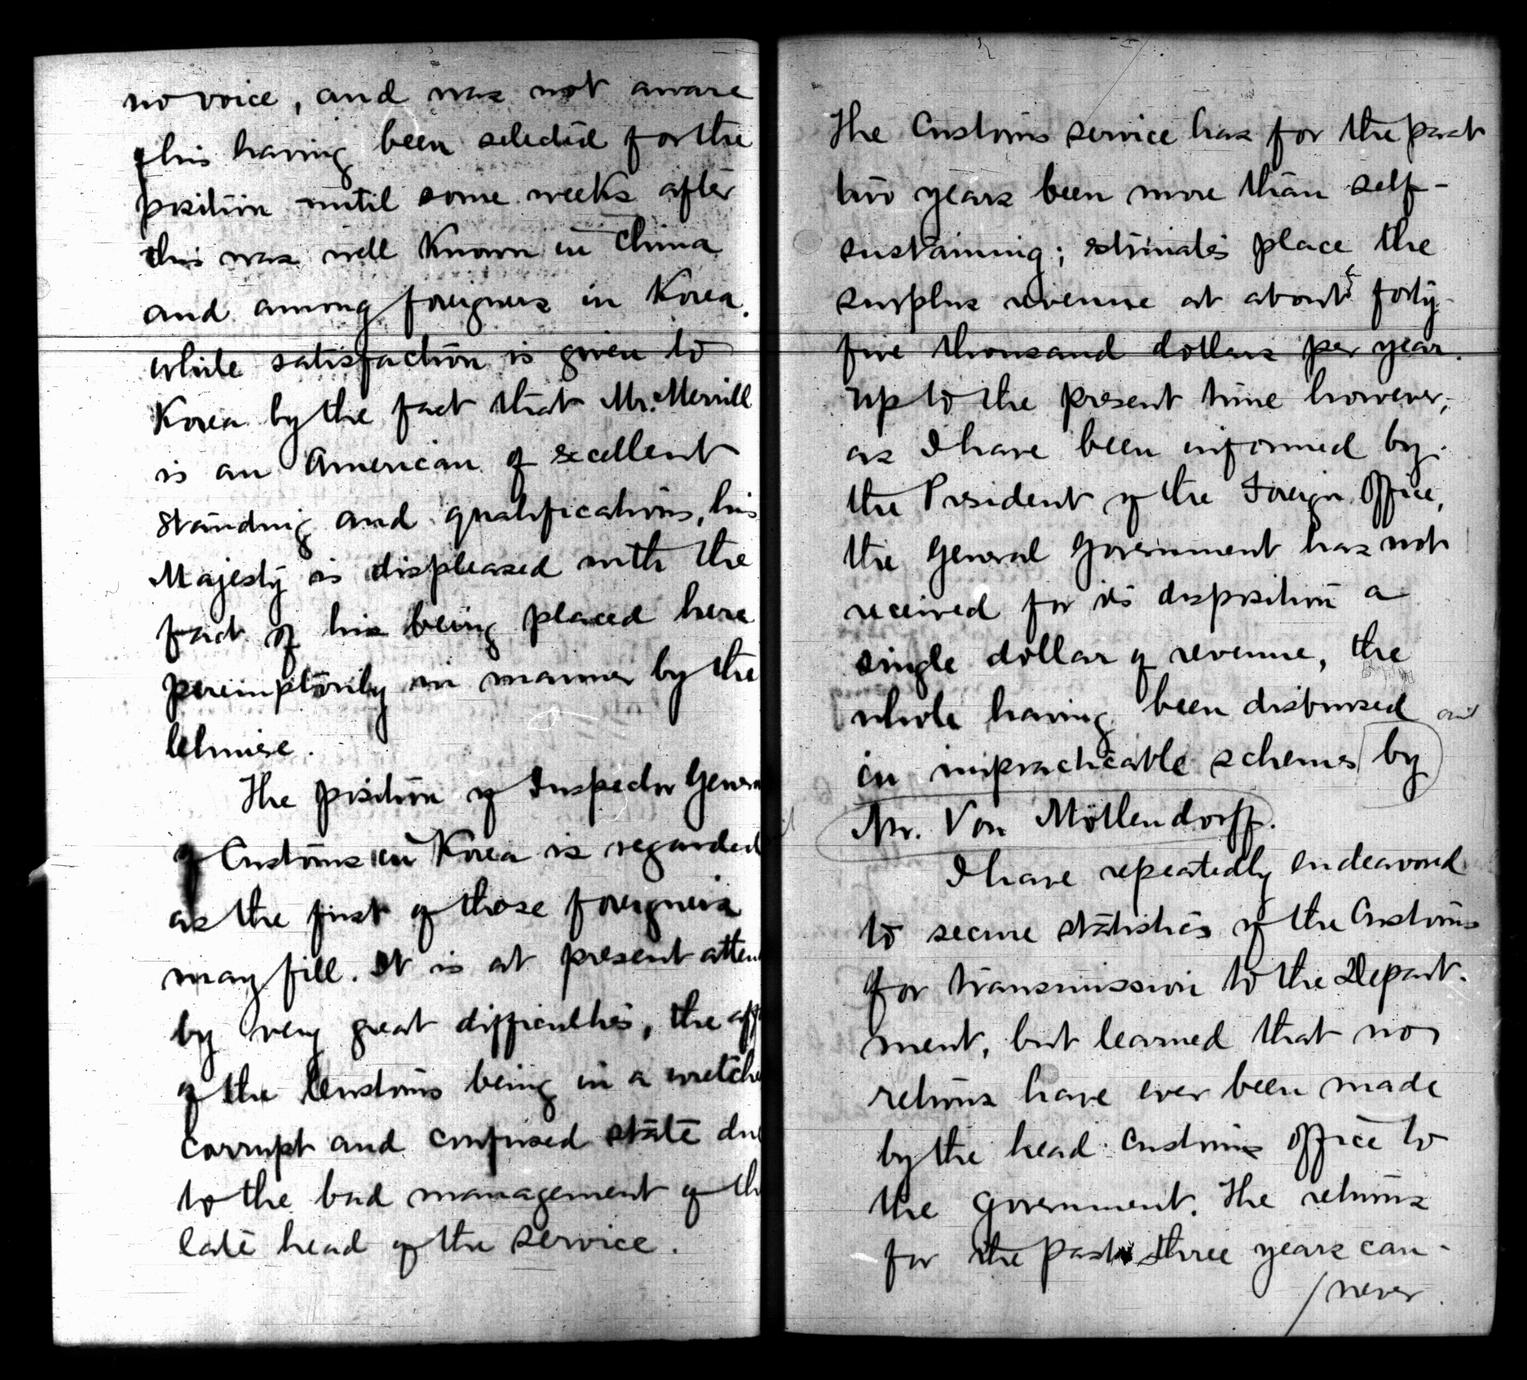 no voice, and was not aware
of his having been selected for the
position until some weeks after
this was well known in China
and among foreigners in Korea.
While satisfaction is given to
Korea by the fact that Mr. Merrill
is an American of excellent
standing and qualifications, his
Majesty is displeased with the
fact of his being placed here
peremptorily in manner by the
Chinese.
The position of Inspector Genera
of Customs in Korea is regarded
as the first of those foreigners
may fill. It is at present atten
by very great difficulties, the aff
of the Customs being in a wretche
corrupt and confused state due
to the bad management of th
late head of the service.
The Customs service has for the past
two years been more than self-
sustaining; estimates place the
surplus revenue at about forty-
five thousand dollars per year.
Up to the present time however,
as I have been informed by
the President of the Foreign Office,
the General Government has not
received for its disposition a
single dollar of revenue, the
whole having been disbursed
in impracticable schemes by
Mr. Von Möllendorff.
I have repeatedly endeavored
to secure statistics of the Customs
for transmission to the Depart-
ment, but learned that no
returns have ever been made
by the head Customs office to
the Government. The returns
for the past three years can-
/never